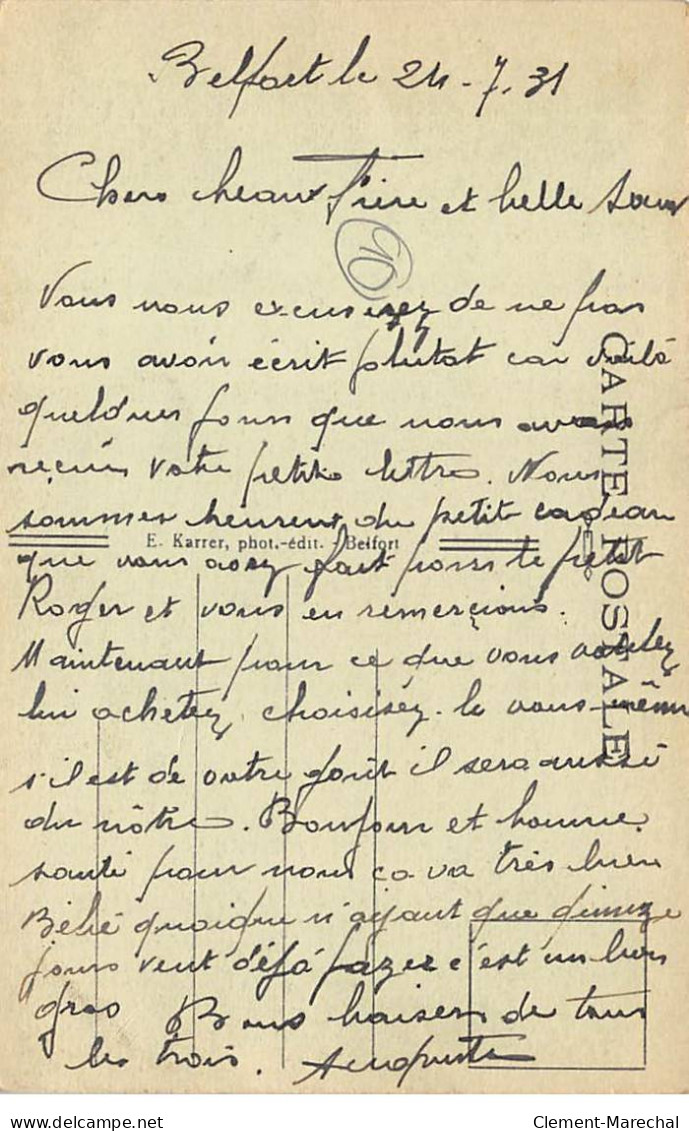 Belfort le 24-7-31
Chers beaux frère et belle sœur
10
Vous nous excuserez de ne pas
vous avoir écrit plutat car voilà
quelques jours que nous avons
reçus votre petite lettre. Nous
sommes heureux du petit cadeau
que vous avez fait pour le petit
Roger et vous en remercions.
Maintenant pour ce que vous voulez
lui achetez, choisiséz-le vous-même
s'il est de votre goût il sera aussi
du nôtre. Bonjour et bonne
santé pour nous ça va très bien
Bébé quoique n'ajant que quinze
jours veut déjà jazer c'est un bien
gros Bons baisers de tous
les trois. Auguste
E. Karrer, phot.-édit. - Belfort
CARTE POSTALE
Clement-Marechal